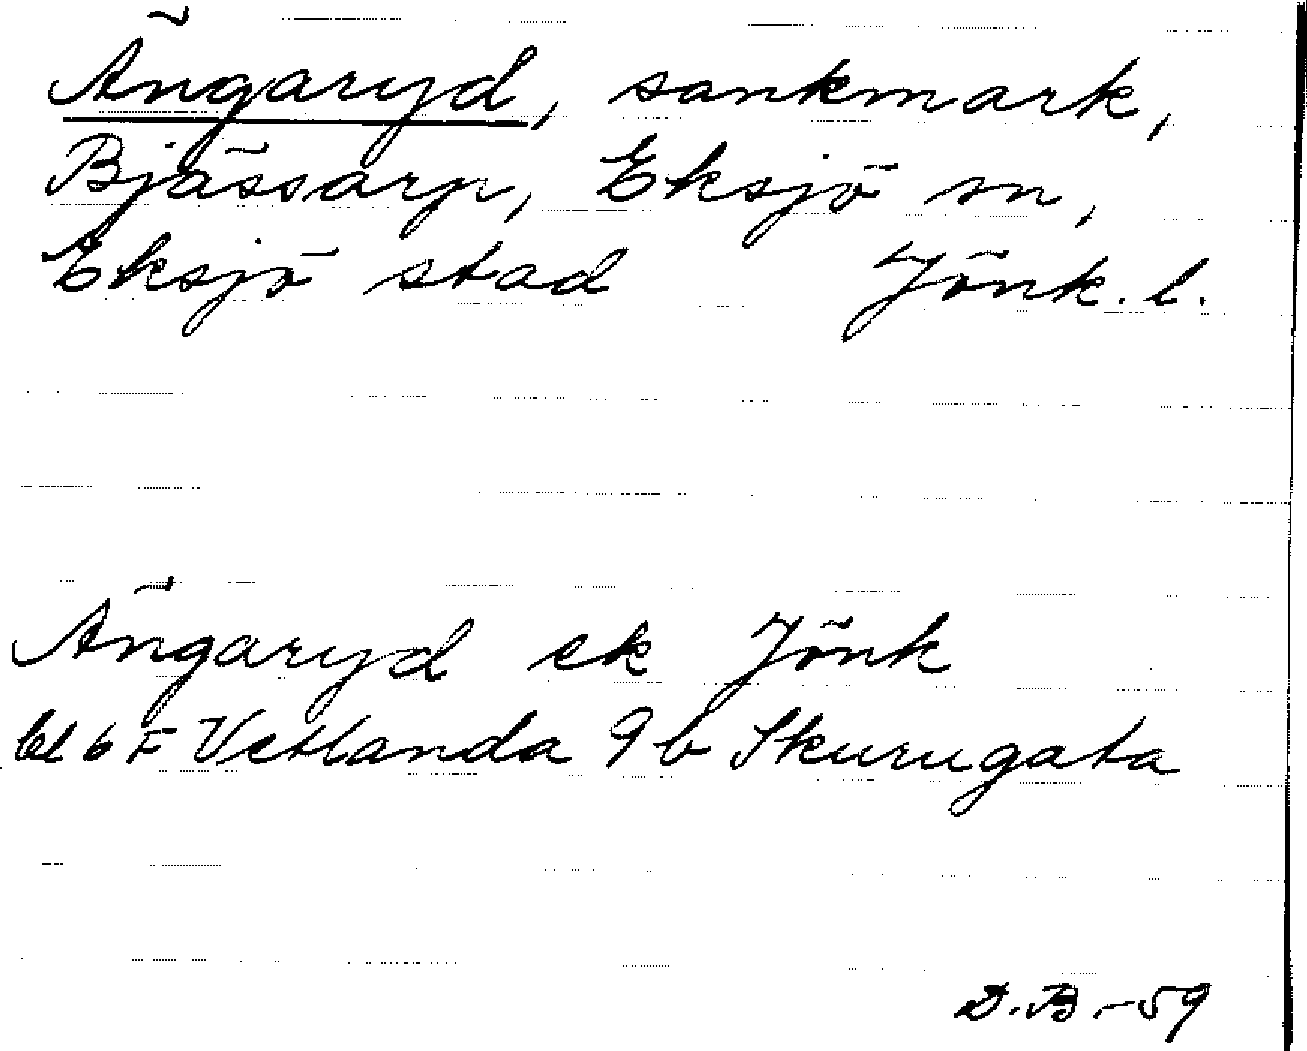 Ängaryd, sankmark,
Bjässarp, Eksjö sn,
Eksjö stad Jönk. l.
Ängaryd ek Jönk
bl 6 F Vetlanda 9 b Skurugata
D.B.-59